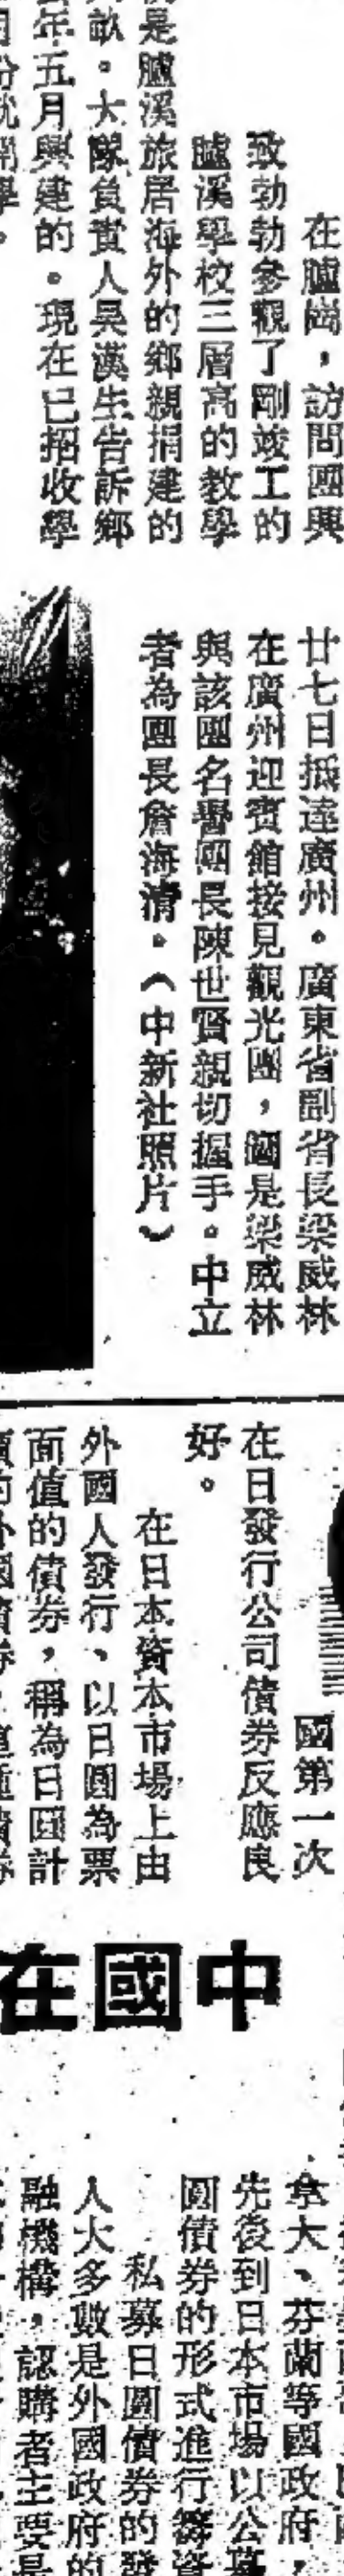 在臚崗，訪問團興
致勃勃參觀了剛竣工的
臚溪學校三層高的教學
是臚溪旅居海外的鄉親捐建的
畝。大隊負責人吳漢生告訴鄉
年五月興建的。現在已招收學
廿七日抵達廣州。廣東省副省長梁威林
在廣州迎賓館接見觀光團，圖是梁威林
與該團名譽團長陳世賢親切握手。中立
者為團長詹海清。（中新社照片）
國第一次
在日發行公司債券反應良
好。
在日本資本市場上由
外國人發行、以日圓為票
面值的債券，稱為日圓計
中國在
拿大、芬蘭等國政府，
先後到日本市場以公募
圓債券的形式進行籌資
私募日圓債券的發
人大多數是外國政府的
融機構，認購者主要是